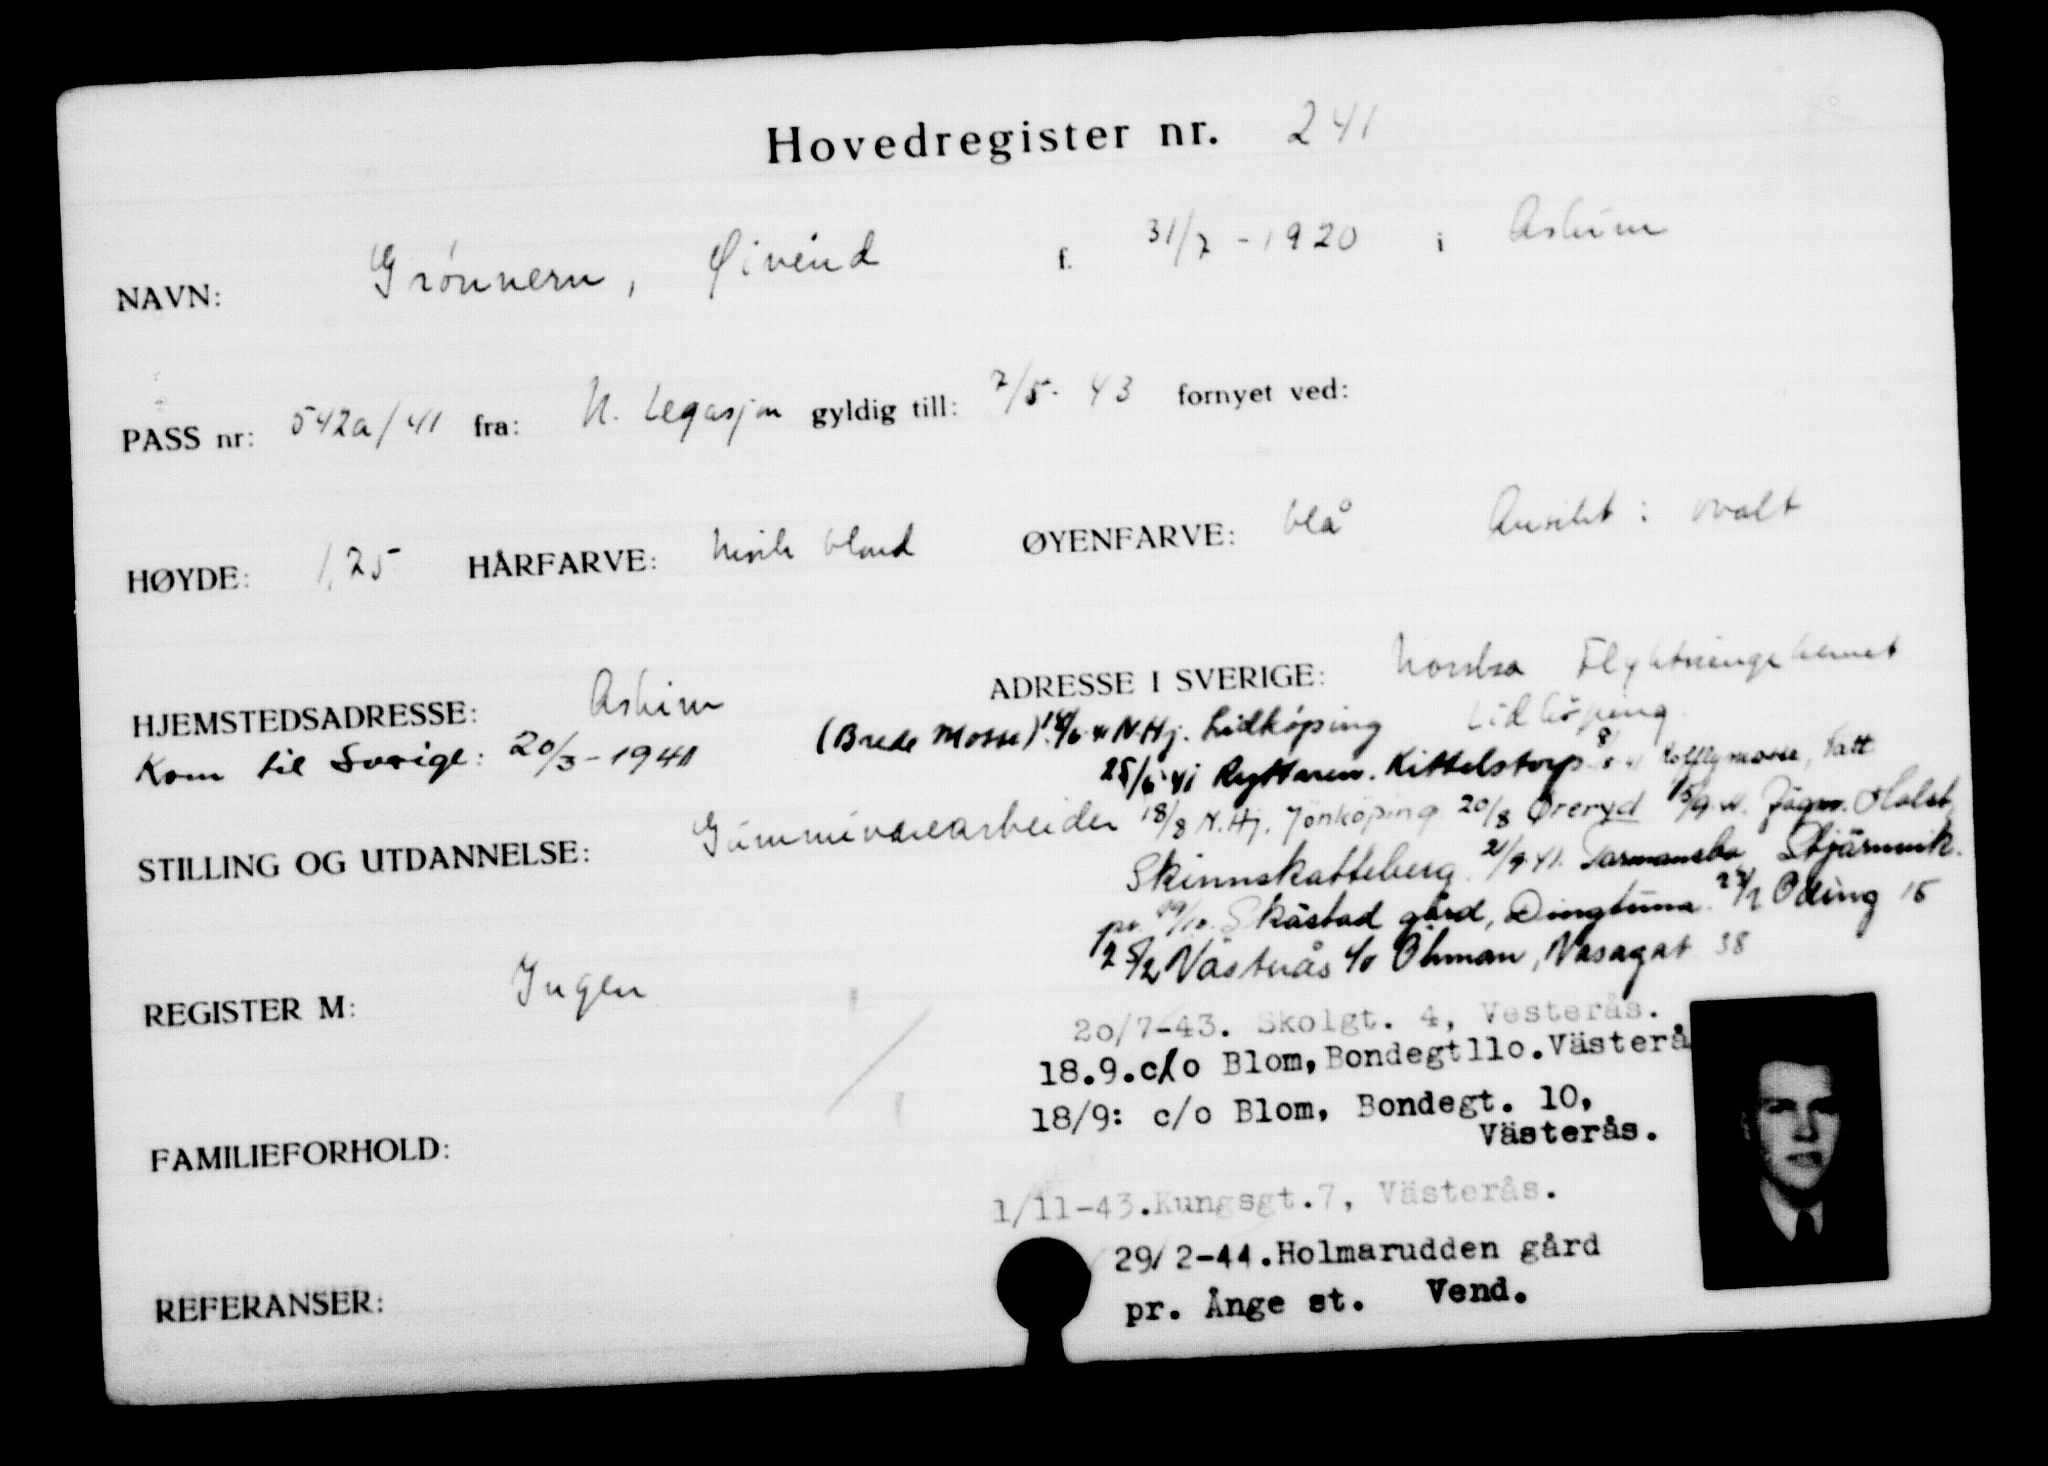 Hovedregister nr. 241
NAVN: Grönnern, Øivind f. 31/7 - 1920 i Askim
PASS nr: 542a/41 fra: N. Legasjon gyldig till: 7/5 - 43 fornyet ved:
HØYDE: 1,75 HÅRFARVE: mörk blond ØYENFARVE: blå Ansikt: ovalt
HJEMSTEDSADRESSE: Askim ADRESSE I SVERIGE: Norska Flyktningehemet
Lidköping
Kom til Sverige: 20/3 - 1941 (Brede Mosse) N.Hj. Lidköping
25/6 41 Ryttaren. Kittelstorp
STILLING OG UTDANNELSE: Gummivarearbeider 18/8 N.Hj. Jönköping 20/8 Øreryd 15/9 Jägm. Holst,
Skinnskatteberg 21/9 41. Tarmansbo Stjärnvik.
pr. Skästad gård, Dingtuna Oding 15
25/2 Västerås c/o Öhman, Vasagat 38
REGISTER M: Ingen
20/7-43. Skolgt. 4, Vesterås.
18.9.c/o Blom, Bondegt110.Västerå
18/9: c/o Blom, Bondegt. 10,
Västerås.
FAMILIEFORHOLD:
1/11-43.Kungsgt.7, Västerås.
29/2-44.Holmarudden gård
REFERANSER:
pr. Ånge st. Vend.